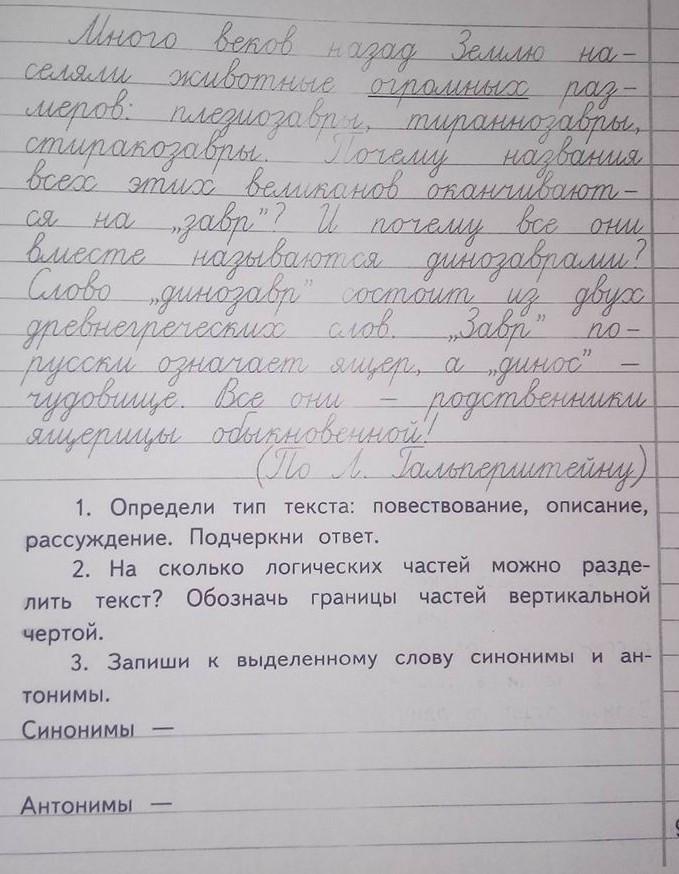 Много веков назад Землю на-
селяли животные огромных раз-
меров: плезиозавры, тираннозавры,
стиракозавры. Почему названия
всех этих великанов оканчивают-
ся на „завр"? И почему все они
вместе называются динозаврами?
Слово „динозавр" состоит из двух
древнегреческих слов. „Завр" по-
русски означает ящер, а „динос" –
чудовище. Все они – родственники
ящерицы обыкновенной!
(По Л. Гальперштейну)
1. Определи тип текста: повествование, описание,
рассуждение. Подчеркни ответ.
2. На сколько логических частей можно разде-
лить текст? Обозначь границы частей вертикальной
чертой.
3. Запиши к выделенному слову синонимы и ан-
тонимы.
Синонимы —
Антонимы —